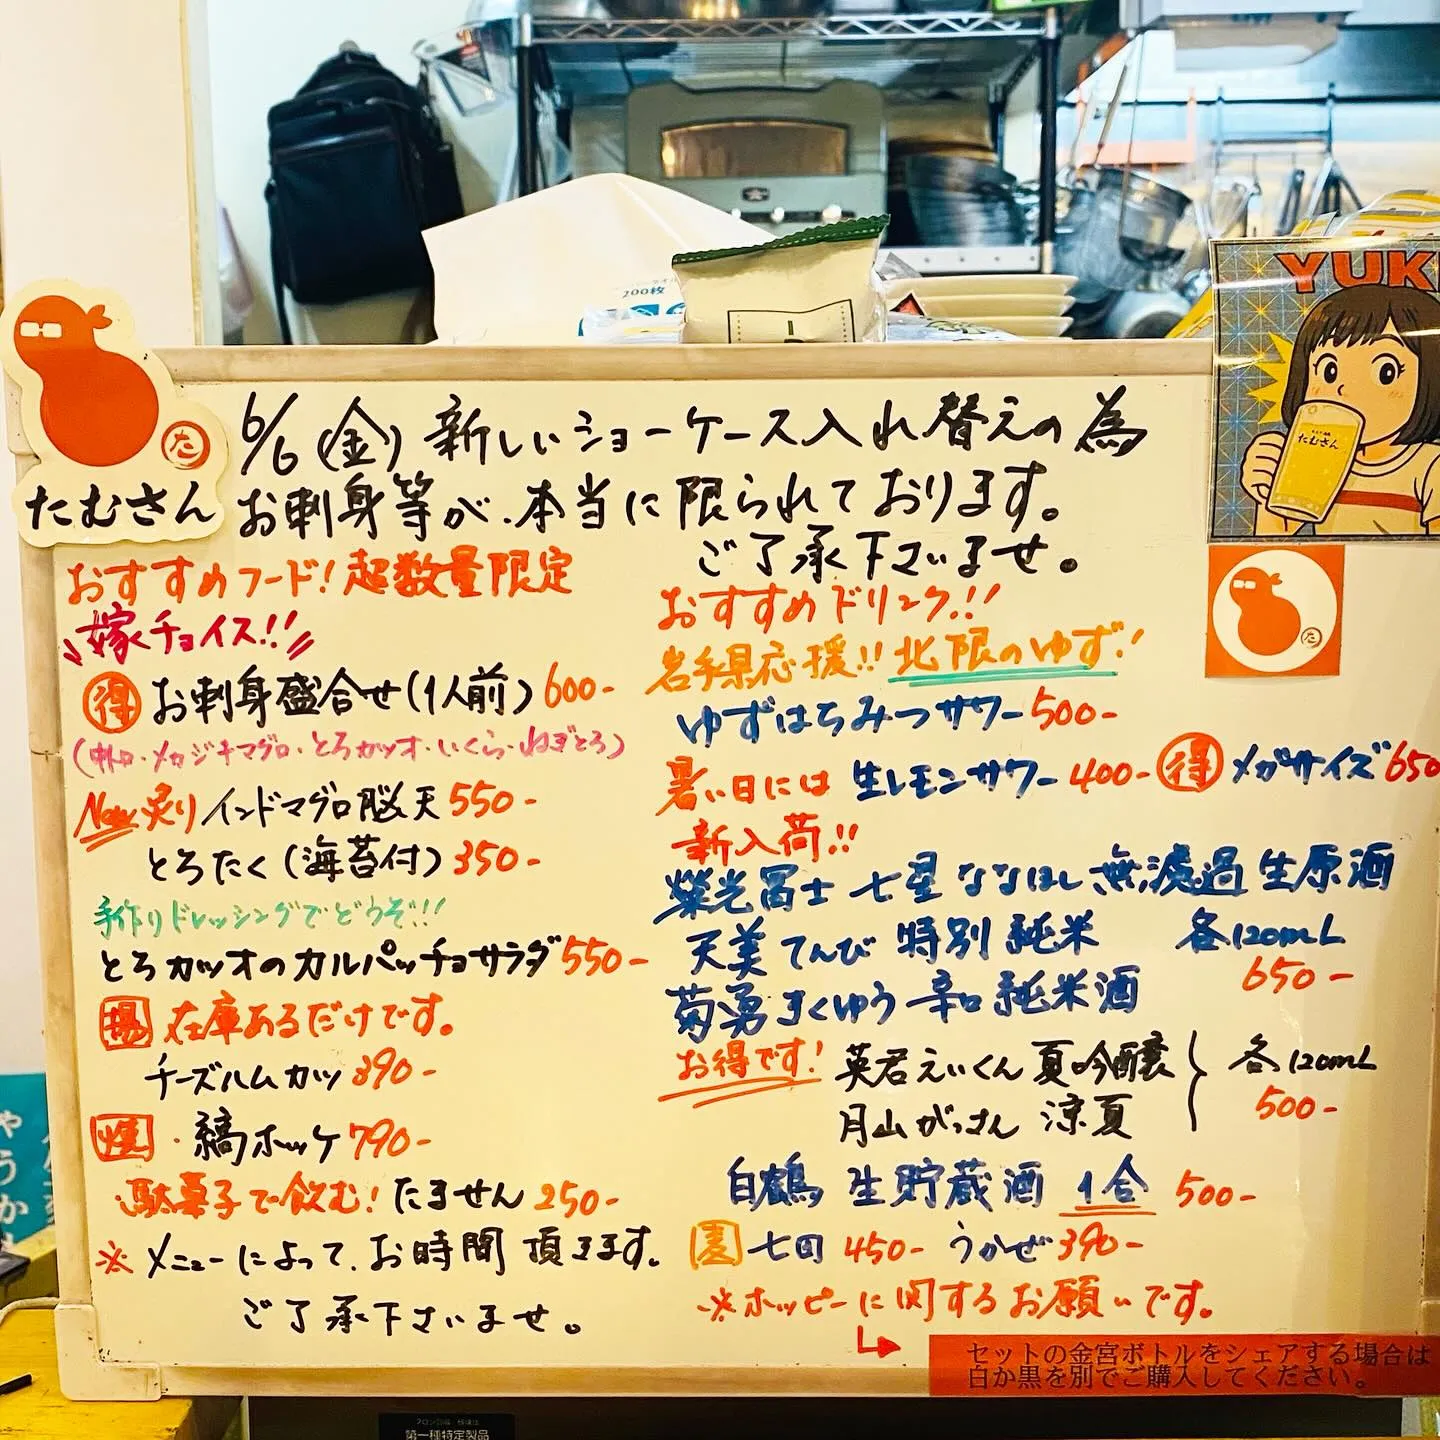 200枚
YUKI
たむさん
た
たむさん
6/6(金)新しいショーケース入れ替えの為
お刺身等が、本当に限られております。
ご了承下さいませ。
おすすめフード!超数量限定
嫁チョイス!!
得 お刺身盛合せ(1人前)600-
(中トロ・メカジキマグロ・とろカツオ・いくら・ねぎとろ)
New 炙りインドマグロ脳天550-
とろたく(海苔付)350-
手作りドレッシングでどうぞ!!
とろカツオのカルパッチョサラダ550-
揚 在庫あるだけです。
チーズハムカツ390-
焼・縞ホッケ790-
駄菓子で飲む!たません250-
※メニューによって、お時間頂きます。
ご了承下さいませ。
おすすめドリンク!!
岩手県応援!!北限のゆず!
ゆずはちみつサワー500-
暑い日には 生レモンサワー400- 得 メガサイズ650
新入荷!!
榮光冨士 七星 ななほし 無濾過生原酒
天美 てんび 特別純米 各120mL
650-
菊勇 きくゆう 辛口純米酒
お得です! 英君えいくん 夏吟醸
月山がっさん 涼夏
各120mL
500-
白鶴 生貯蔵酒 1合 500-
麦 七回 450- うかぜ390-
※ホッピーに関するお願いです。
セットの金宮ボトルをシェアする場合は
白か黒を別でご購入してください。
第一種特定製品